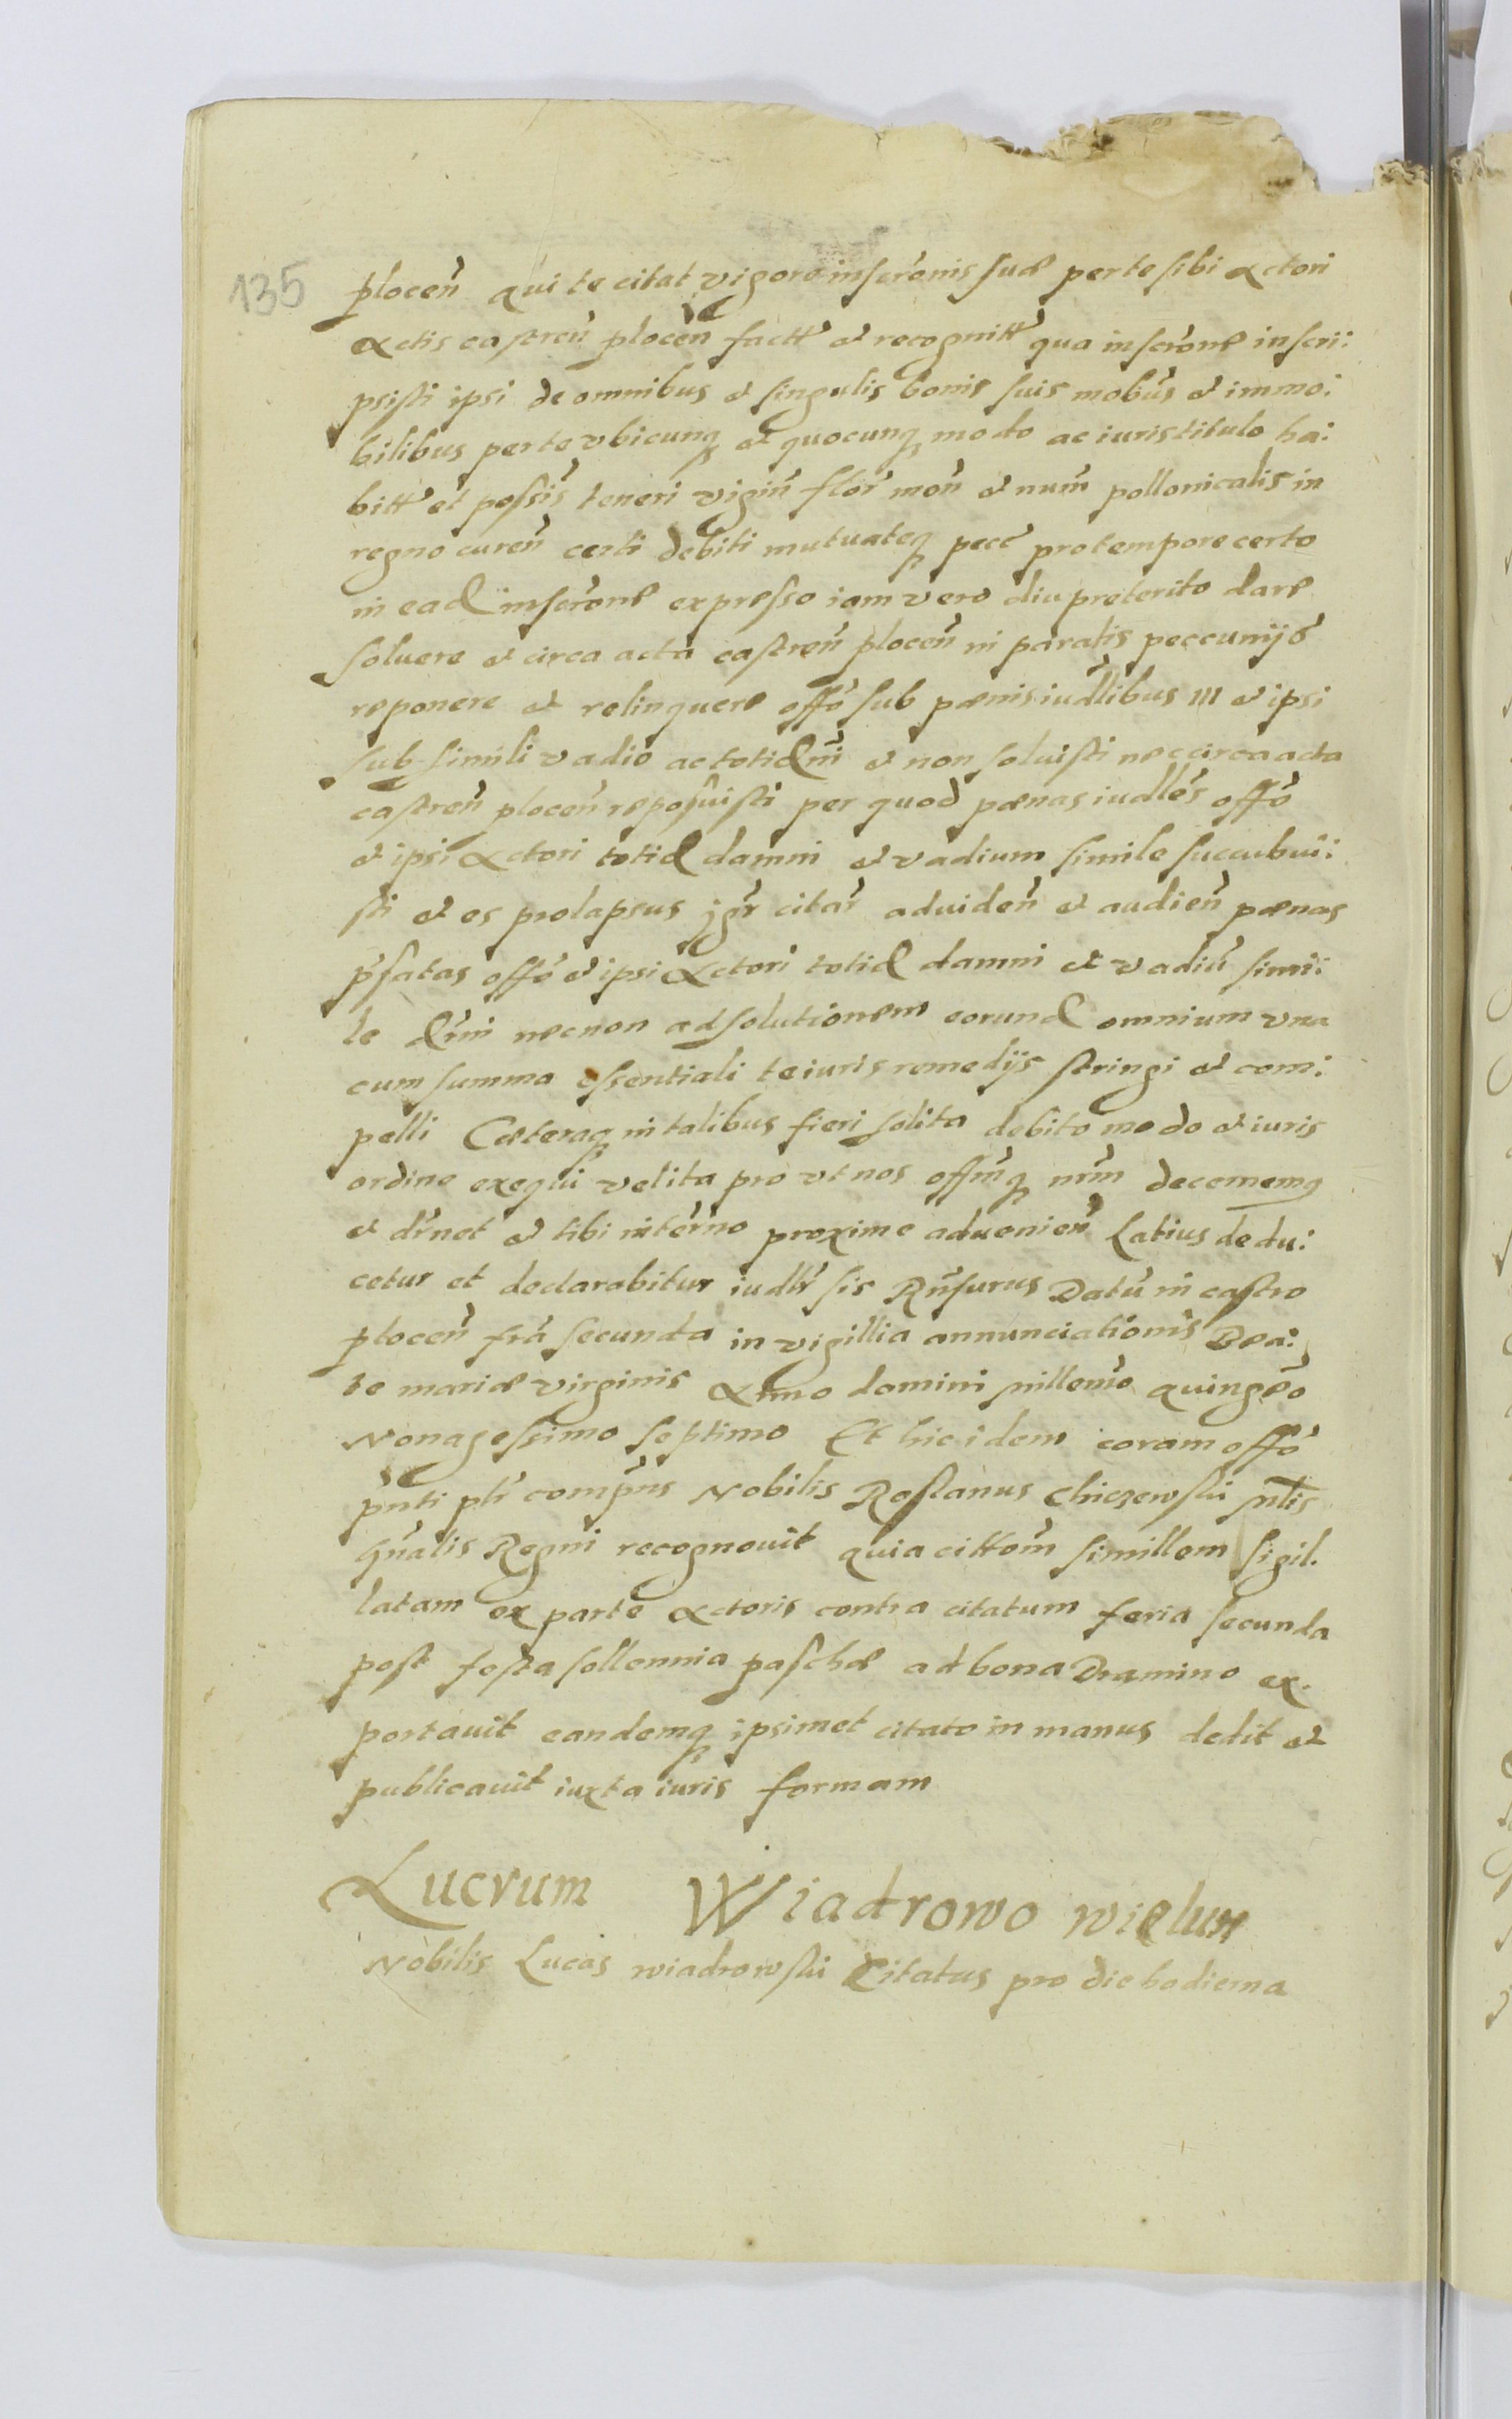 135
plocen̄ qui te citat vigore inscr̄onis suæ per te sibi Actori
Actis castren̄ plocen̄ factt et recognitt qua inscr̄one inscri:
psisti ipsi de omnibus et singulis bonis suis mobūs et immo:
bilibus per te vbicunq et quocunq modo ac iuris titulo ha:
bitt et possis teneri vigin̄ flor mon̄ et num̄ pollonicalis in
regno curen̄ certi debiti mutuateq pecc pro tempore certo
in ead inscr̄one expresso iam vero diu preterito dare
soluere et circa acta castren̄ plocen̄ in paratis peccunijs
reponere et relinquere offo sub pænis iudlibus III et ipsi
sub simili vadio ac totid m̄i et non soluisti nec circa acta
castren̄ plocen̄ reposuisti per quod pænas iudles offo
et ipsi Actori totid damni et vadium simile succubui:
sti et es prolapsus jgr citar ad uiden̄ et audien̄ pænas
p̄fatas offo et ipsi Actori totid damni et vadiū simi:
le dm̄i necnon ad solutionem eorund omnium vna
cum summa essentiali te iuris remedijs stringi et com:
pelli Cæteraq in talibus fieri solita debito modo et iuris
ordine exequi velita pro vt nos offm̄q nrm̄ decernemus
et dr̄net et tibi in ter̄no proxime aduenien̄ Latius dedu:
cetur et declarabitur iudlr sis Rn̄surus Datū in castro
plocen̄ fr̄a secunda in vigillia annunciationis Bea:
te mariæ virginis Anno domini millemo quingēo
Nonagessimo septimo Et hic idem coram offo
p̄nti plr comp̄ns Nobilis Roslanus Chiczewski mlis
gn̄alis Regni recognouit quia cittom̄ simillem sigil.
latam ex parte Actoris contra citatum feria secunda
post festa sollennia paschæ ad bona Dramino ex.
portauit eandemq ipsimet citato in manus dedit et
publicauit iuxta iuris formam
Lucrum Wiadrowo wielun
Nobilis Lucas wiadrowski Citatus pro die hodierna